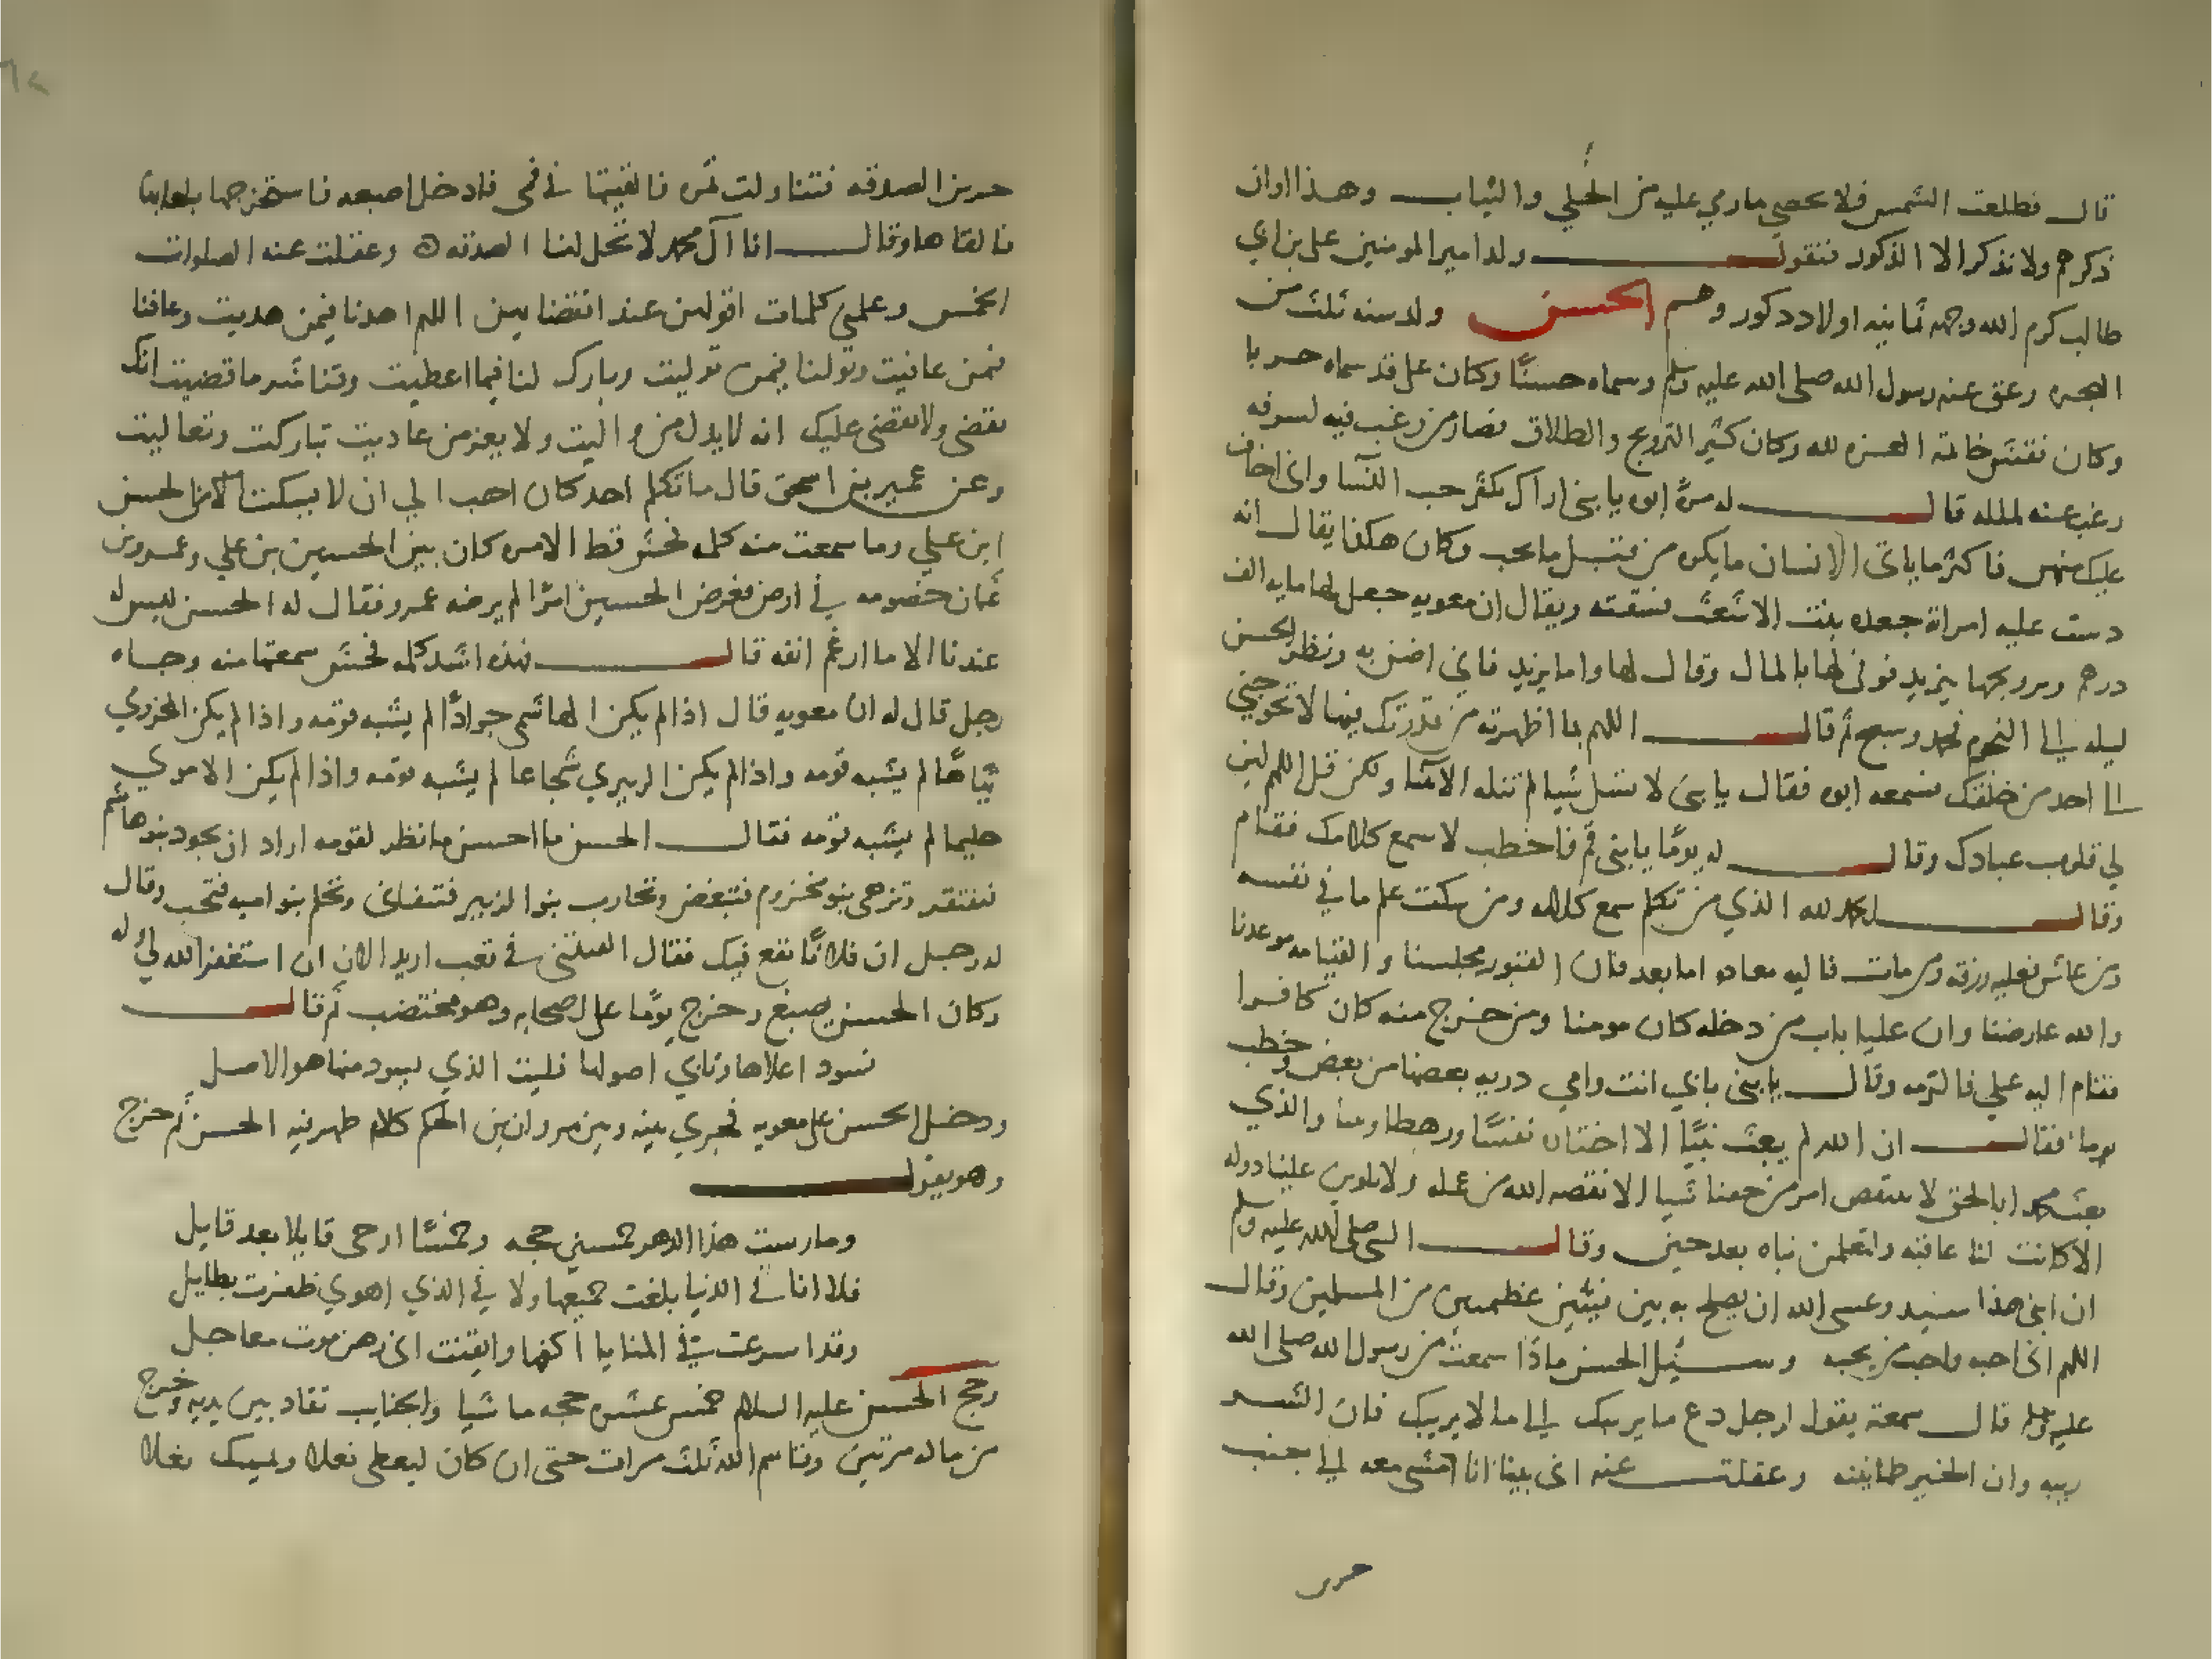 قال فطلعت الشمس فلا يحصى ما رمي عليه من الحلي والثياب وهذا اوان
ذكرهم ولا نذكر الا الذكور فنقول ولد امير المومنين على بن ابي
طالب كرم الله وجهه ثمانيه اولاد دكور وهم الحسن ولد سنه ثلث من
الهجره وعق عنه رسول الله صلى الله عليه وسلم وسماه حسنًا وكان على قد سماه حربا
وكان نقش خاتمه العزه لله وكان كثير التزويج والطلاق فصار من رغب فيه لسرفه
رغب عنه لملله قال له مرةً ابوه يا بنى اراك تكثر حب النسا وانى اخاف
عليك منهن فاكثر ما ياتى الانسان ما يكره من قبل ما يحب وكان هكذا يقال انه
دست عليه امراته جعده بنت الاشعث فسقته ويقال ان معويه جعل لها مايه الف
درهم ويزوجها يزيد فوفى لها بالمال وقال لها واما يزيد فاني اضن به ونظر الحسن
ليله الى النجوم فحمد وسبح ثم قال اللهم بما اظهرته من قدرتك فيها لا تحوجني
الى احد من خلقك فسمعه ابوه فقال يا بنى لا تسل شيا لم تنله الانبيا ولكن قل اللهم لين
لي قلوب عبادك وقال له يومًا يا بنى قم فاخطب لاسمع كلامك فقام
وقال الحمد لله الذي من تكلم سمع كلامه ومن سكت علم ما في نفسه
ومن عاش فعليه رزقه ومن مات فاليه معاده اما بعد فان القبور مجلسنا والقيامه موعدنا
والله عارضنا وان عليا باب من دخله كان مومنا ومن خرج منه كان كافرا
فقام اليه علي فالتزمه وقال يا بنى بابي انت وامي دريه بعضها من بعض وخطب
يوما فقال ان الله لم يبعث نبيًا الا اختار نفسًا ورهطا وبيتا والذي
بعث محمدا بالحق لا ينتقص امر من حقنا شيا الا نقصه الله من عمله ولا تكون علينا دوله
الا كانت لنا عاقبه ولتعلمن نباه بعد حين وقال النبي صلى الله عليه وسلم
ان ابنى هذا سيد وعسى الله ان يصلح به بين فيتين عظيمتين من المسلمين وقال
اللهم انى احبه واحب من يحبه وسيل الحسن ماذا سمعت من رسول الله صلى الله
عليه وسلم قال سمعته يقول لرجل دع ما يريبك الى ما لا يريبك فان الشر
ريبه وان الخير طمانينه وعقلت عنه انى بينا انا امشي معه الى جنب
حرىن
٦٢
حرين الصدقه فتناولت تمره فالقيتها في في فادخل اصبعه فاستخرجها بلعابها
فالقاها وقال انا آل محمد لا تحل لنا الصدقه وعقلت عنه الصلوات
الخمس وعلمني كلمات اقولهن عند انقضايهن اللهم اهدنا فيمن هديت وعافنا
فيمن عافيت وتولنا فيمن توليت وبارك لنا فيما اعطيت وقنا شر ما قضيت انك
تقضى ولا يقضى عليك انه لا يذل من واليت ولا يعز من عاديت تباركت وتعاليت
وعن عمير بن اسحق قال ما تكلم احد كان احب الي ان لا يسكت الا من الحسن
ابن علي وما سمعت منه كلمه فحش قط الا مره كان بين الحسين بن علي وعمرو بن
عثمان خصومه في ارض فعرض الحسين امرًا لم يرضه عمرو فقال له الحسن ليس له
عندنا الا ما ارغم انفه قال فهذه اشد كلمه فحش سمعتها منه وجاه
رجل قال له ان معويه قال اذا لم يكن الهاشمي جوادًا لم يشبه قومه واذا لم يكن المخزومي
تياهًا لم يشبه قومه واذا لم يكن الزبيري شجاعا لم يشبه قومه واذا لم يكن الاموي
حليما لم يشبه قومه فقال الحسن ما احسن ما نظر لقومه اراد ان يجود بنو هاشم
فتفتقر وتزهى بنو مخزوم فتبغض وتحارب بنو الزبير فتتفانى وتحلم بنو اميه فتحب وقال
له رجل ان فلانًا يقع فيك فقال القيتنى في تعب اريد الان ان استغفر الله لي وله
وكان الحسن يصبغ وخرج يومًا على اصحابه وهو مختضب ثم قال
نسود اعلاها وتابي اصولها فليت الذي يسود منها هو الاصل
ودخل الحسن على معويه فجرى بينه وبين مروان بن الحكم كلام ظهر فيه الحسن ثم خرج
وهو يقول
ومارست هذا الدهر خمسين حجه وخمسًا ارجى قابلا بعد قابل
فلا انا في الدنيا بلغت جميعها ولا في الذي اهوي ظفرت بطايل
وقد اسرعت فيَّ المنايا اكفها وايقنت انى رهن موت معاجل
وحج الحسن عليه السلام خمس عشره حجه ماشيا والجنايب تقاد بين يديه وخرج
من ماله مرتين وقاسم الله ثلث مرات حتى ان كان ليعطي نعلا ويمسك نعلا